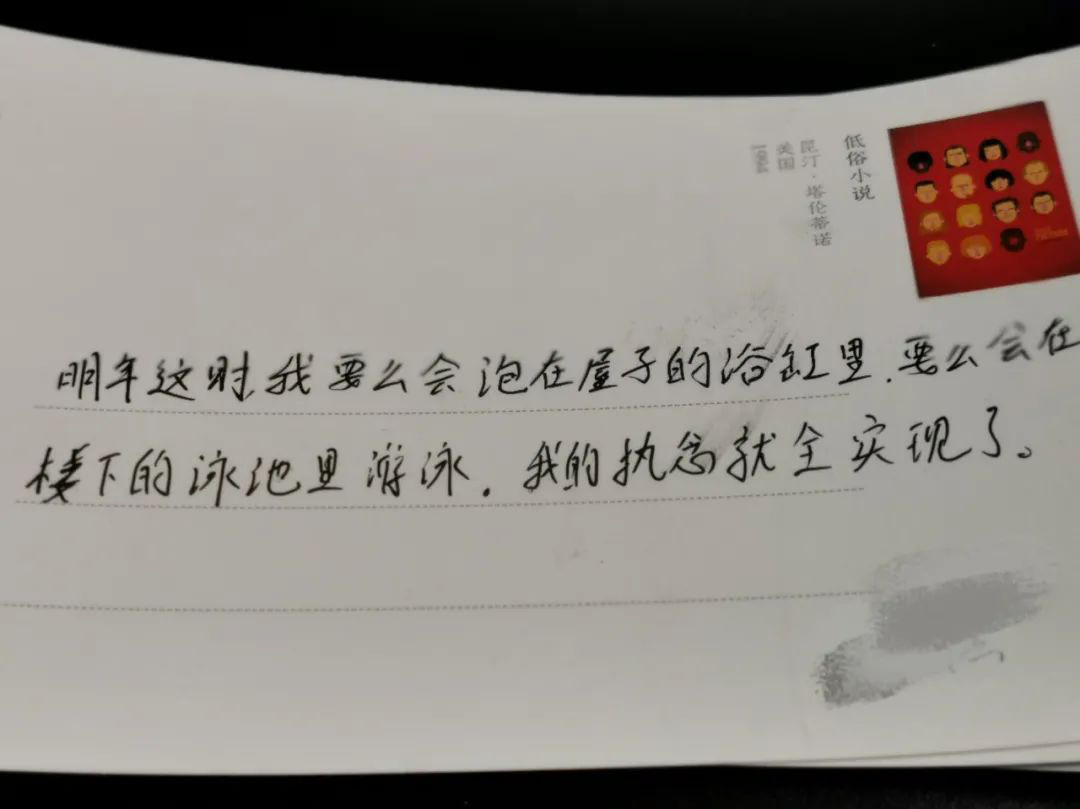 低俗小说
昆汀·塔伦蒂诺
美国
1994
明年这时我要么会泡在屋子的浴缸里.要么会在
楼下的泳池里游泳.我的执念就全实现了。